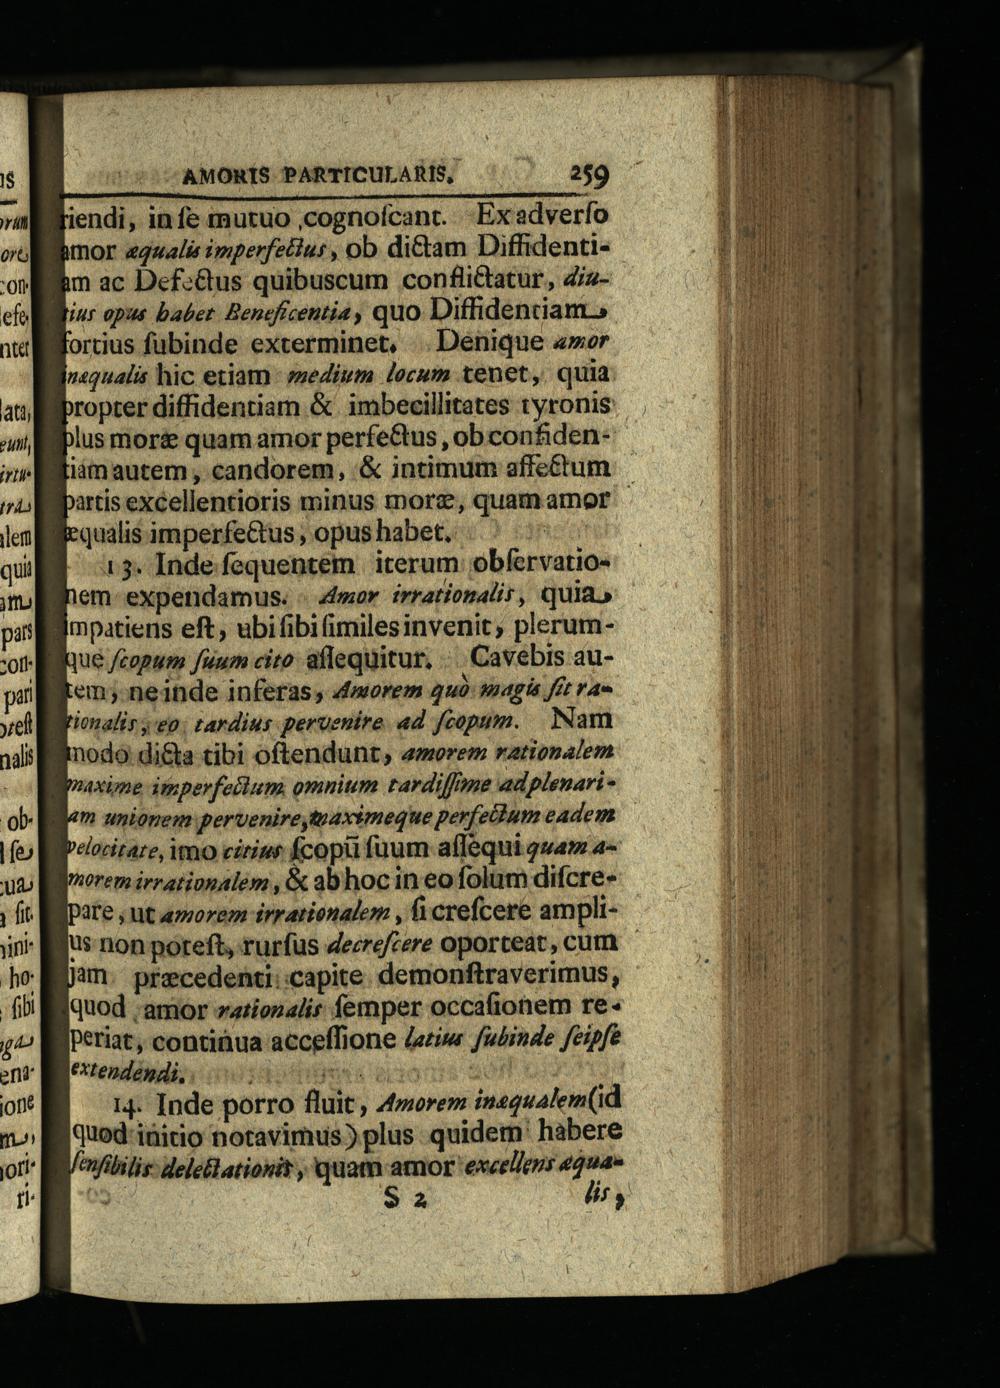 AMORIS PARTICULARIS. 259
riendi, in ſe mutuo cognoſcant. Ex adverſo
amor æqualis imperfectus, ob dictam Diffidenti-
am ac Defectus quibuscum conflictatur, diu-
tius opus habet Beneficentia, quo Diffidentiam
fortius ſubinde exterminet. Denique amor
inæqualis hic etiam medium locum tenet, quia
propter diffidentiam & imbecillitates tyronis
plus moræ quam amor perfectus, ob confiden-
tiam autem, candorem, & intimum affectum
partis excellentioris minus moræ, quam amor
æqualis imperfectus, opus habet.
13. Inde ſequentem iterum obſervatio-
nem expendamus. Amor irrationalis, quia
impatiens eſt, ubi ſibi ſimiles invenit, plerum-
que ſcopum ſuum cito aſſequitur. Cavebis au-
tem, ne inde inferas, Amorem quò magis ſit ra-
tionalis, eo tardius pervenire ad ſcopum. Nam
modo dicta tibi oſtendunt, amorem rationalem
maxime imperfectum omnium tardiſſime ad plenari-
am unionem pervenire, maximeque perfectum eadem
velocitate, imo citius ſcopū ſuum aſſequi quam a-
morem irrationalem, & ab hoc in eo ſolum diſcre-
pare, ut amorem irrationalem, ſi creſcere ampli-
us non poteſt, rurſus decreſcere oporteat, cum
jam præcedenti capite demonſtraverimus,
quod amor rationalis ſemper occaſionem re-
periat, continua acceſſione latius ſubinde ſeipſe
extendendi.
14. Inde porro fluit, Amorem inæqualem (id
quod initio notavimus) plus quidem habere
ſenſibilis delectationis, quam amor excellens æqua-
S 2 lis,